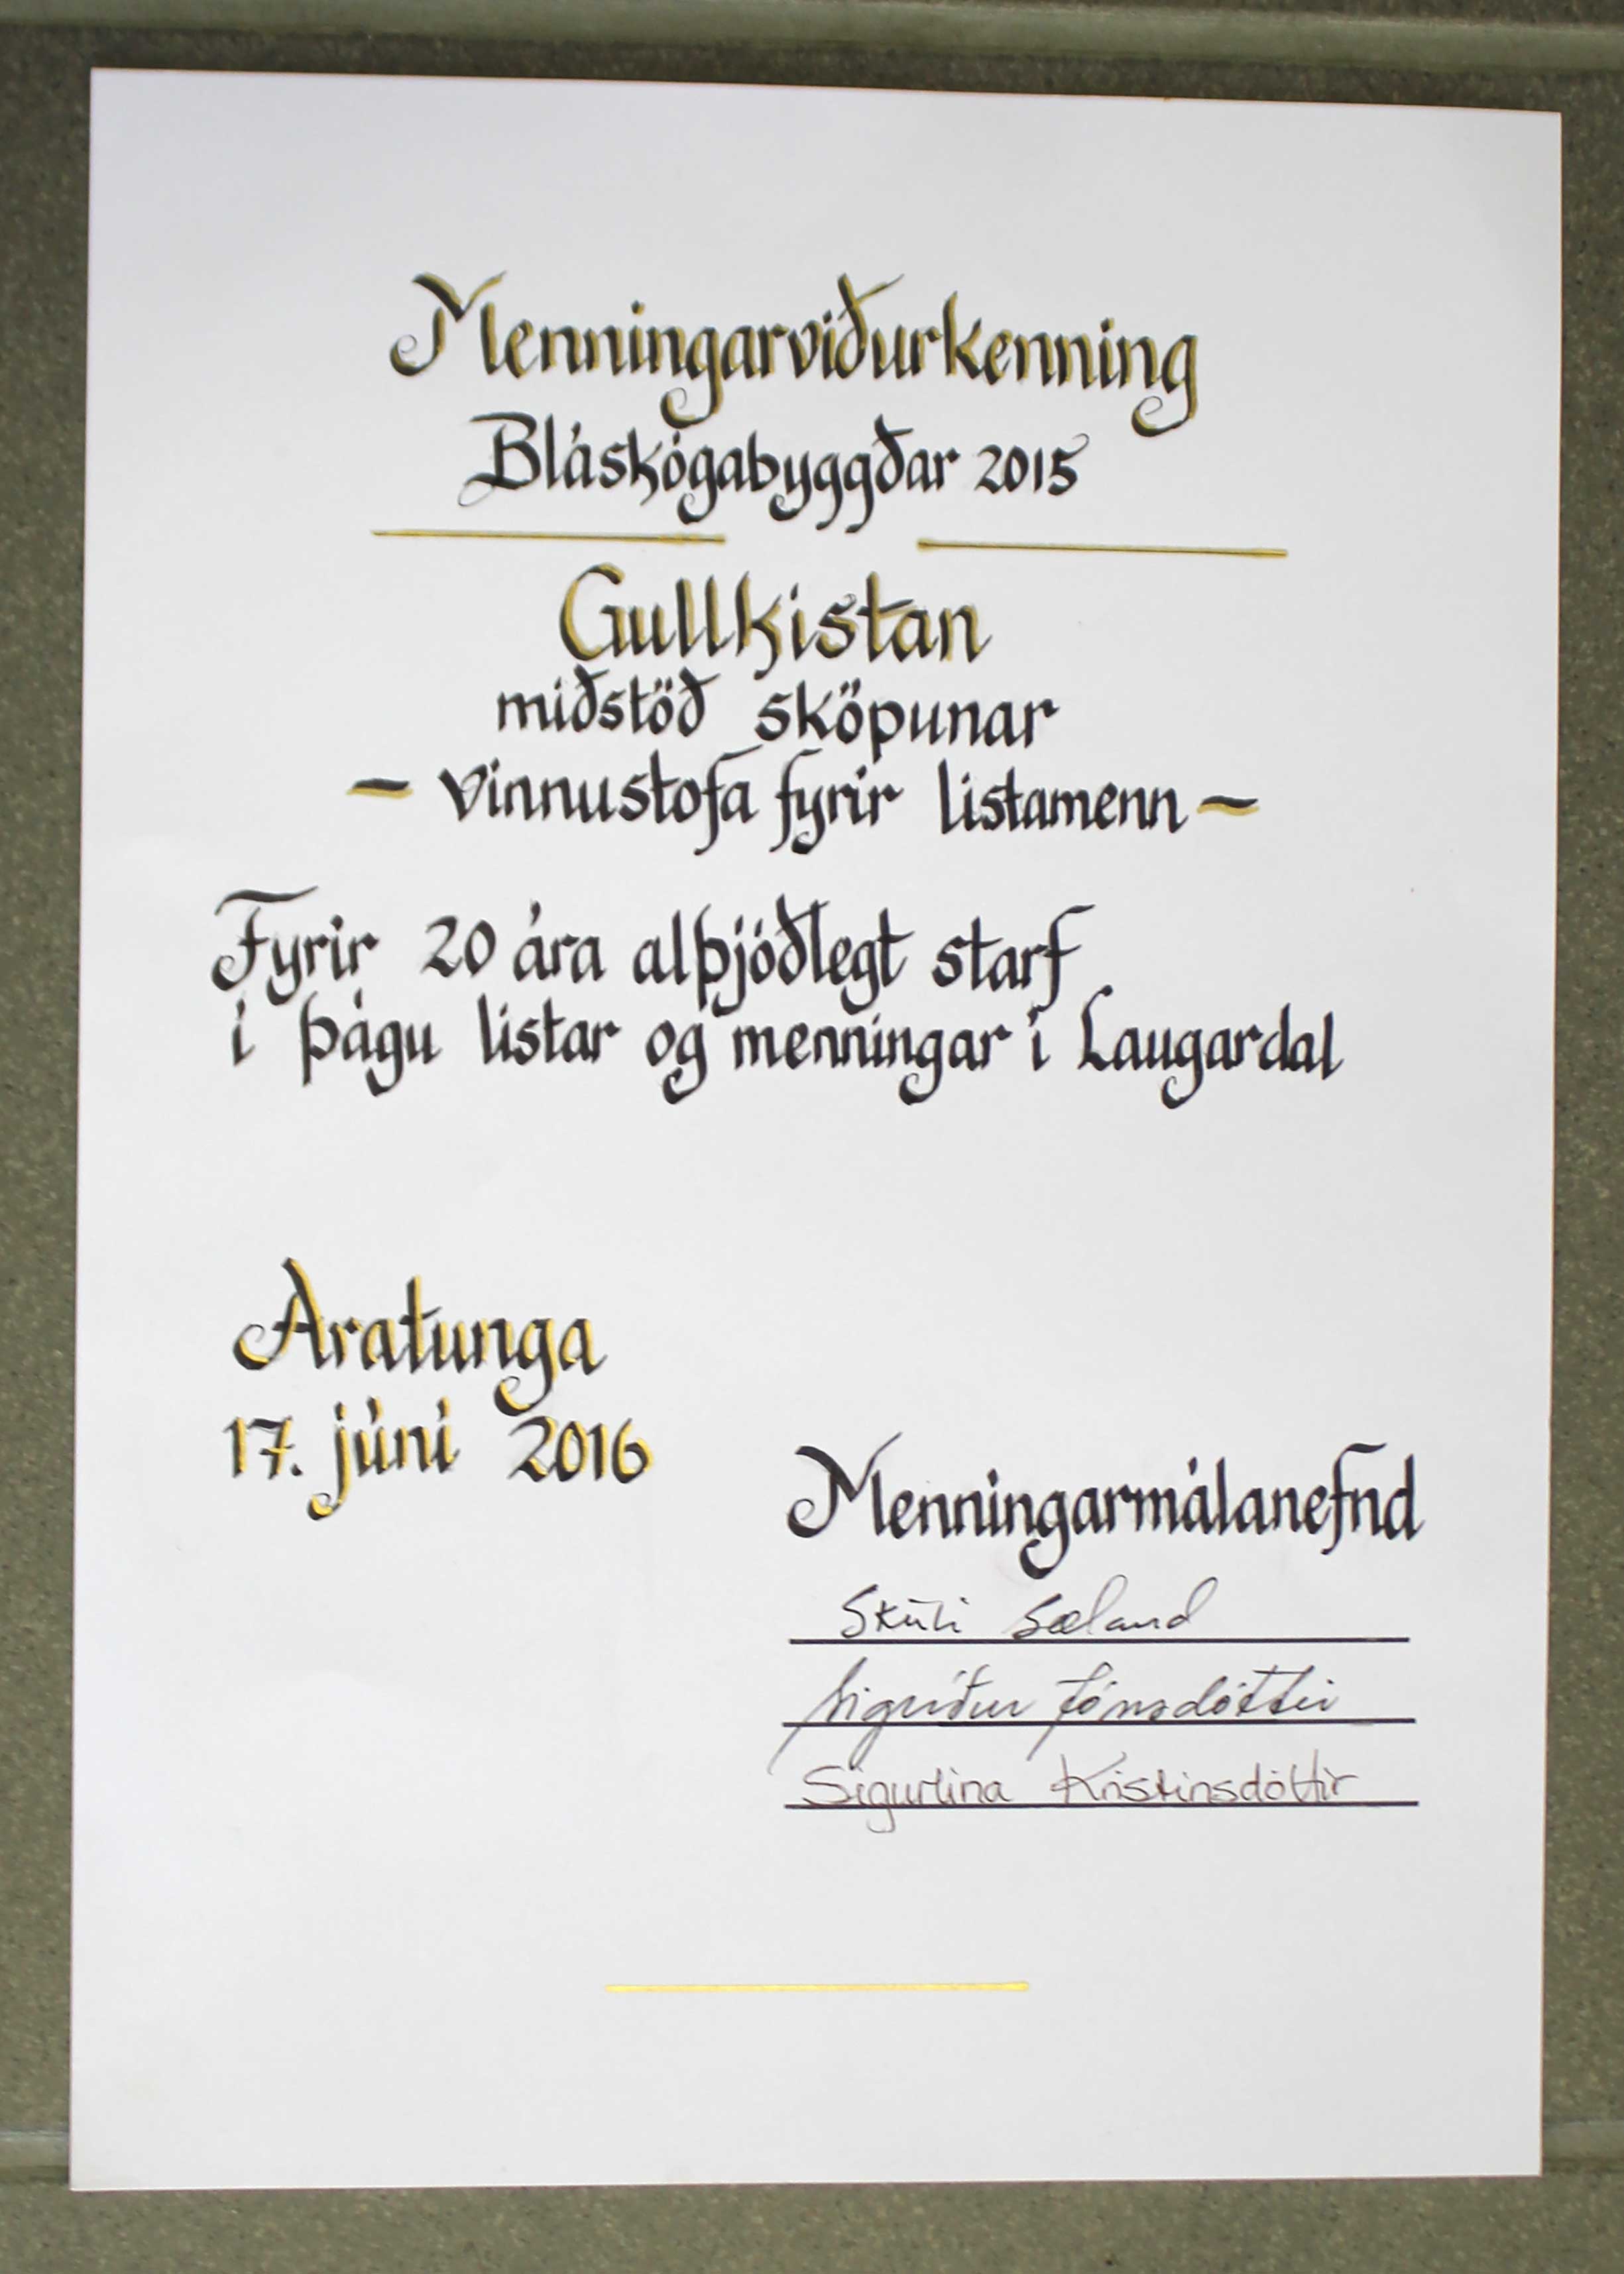 Menningarviðurkenning
Bláskógabyggðar 2015
Gullkistan
miðstöð sköpunar
- vinnustofa fyrir listamenn -
Fyrir 20 ára alþjóðlegt starf
í þágu listar og menningar í Laugardal
Aratunga
17. júní 2016
Menningarmálanefnd
Skúli Sæland
Sigríður Jónsdóttir
Sigurlína Kristinsdóttir